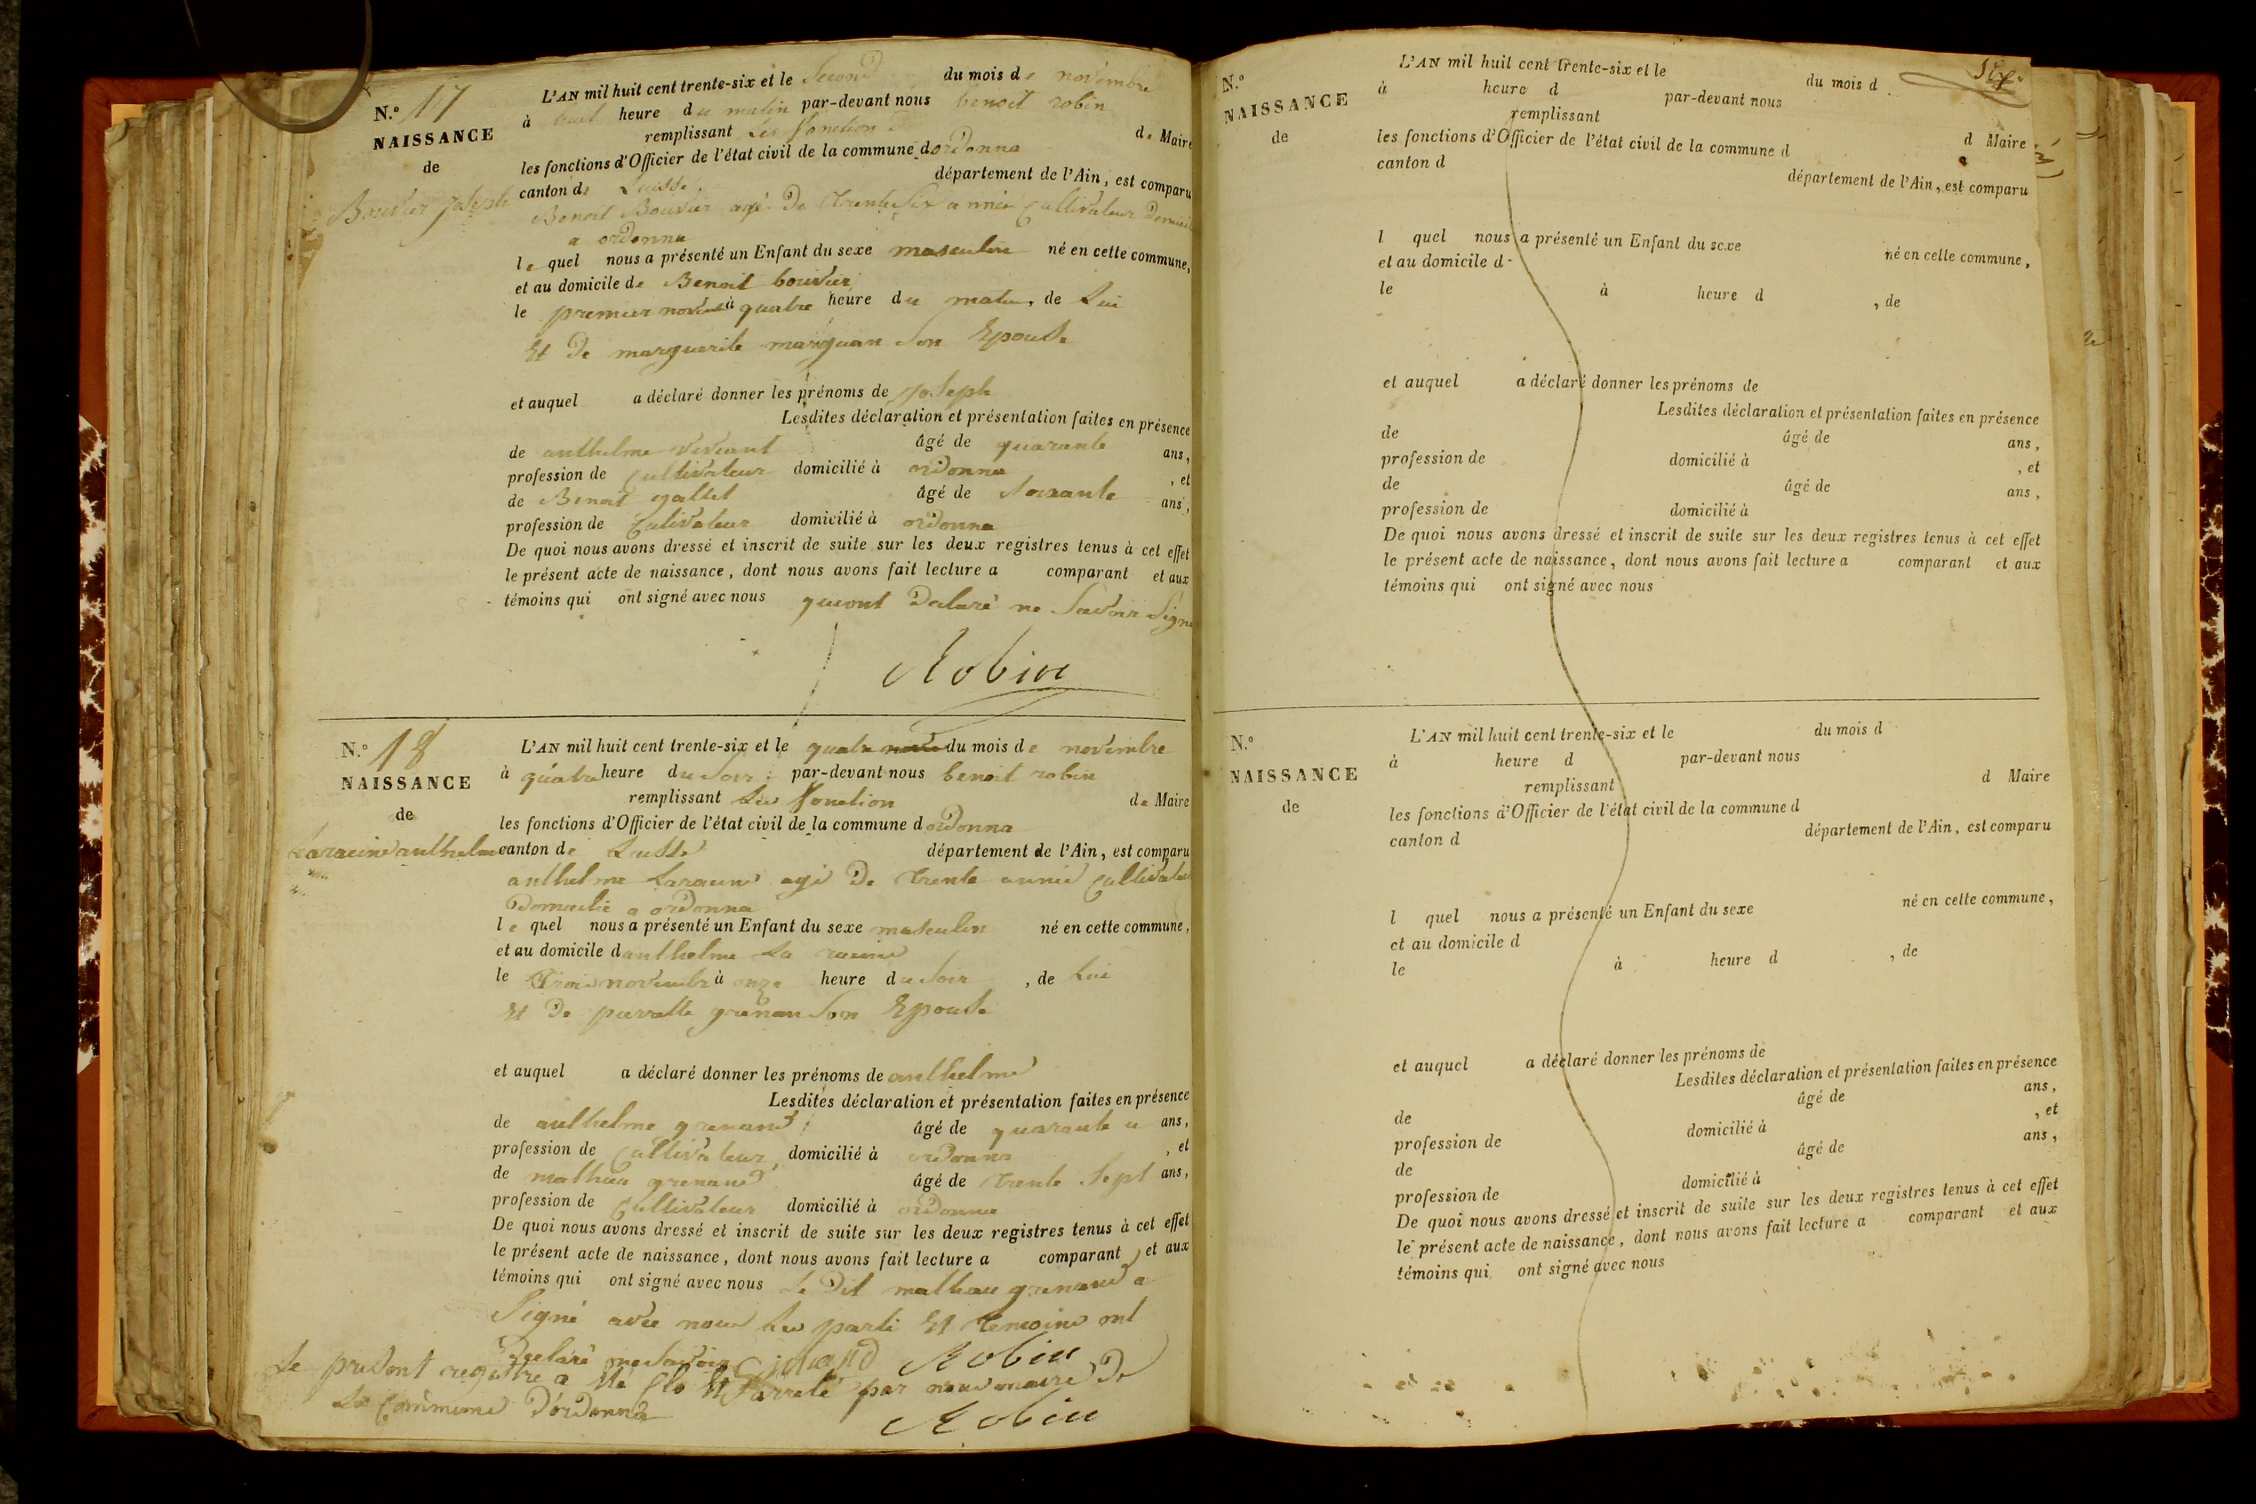 N.º 17
NAISSANCE
de
Bouvier joseph
L'AN mil huit cent trente-six et le Second du mois de novembre
à huit heure du matin par-devant nous benoit robin
remplissant Les fonction de Maire
les fonctions d'Officier de l'état civil de la commune dordonna
canton de département de l'Ain, est comparu
Benoit Bouvier agé De trente Six année Cultivateur
a ordonna
le quel nous a présenté un Enfant du sexe masculin né en cette commune,
et au domicile de Benoit bouvier
le premier à quatre heure du matin, de Lui
Et De marguerite son Epouse
et auquel a déclaré donner les prénoms de joseph
Lesdites déclaration et présentation faites en présence
de anthelme âgé de quarante ans,
profession de Cultivateur domicilié à ordonna , et
de Benoit gallet âgé de soixante ans,
profession de Cultivateur domicilié à ordonna
De quoi nous avons dressé et inscrit de suite sur les deux registres tenus à cet effet
le présent acte de naissance, dont nous avons fait lecture a comparant et aux
témoins qui ont signé avec nous quiont Declaré ne Savoir Signe
Robin
N.º 18
NAISSANCE
de
Laracine anthelme
L'AN mil huit cent trente-six et le quatre du mois de novembre
à quatre heure du Soir par-devant nous benoit robin
remplissant Les fonction de Maire
les fonctions d'Officier de l'état civil de la commune dordonna
canton de département de l'Ain, est comparu
anthelme Laracine agé De trente année Cultivateur
Domicilié a ordonna
le quel nous a présenté un Enfant du sexe masculin né en cette commune,
et au domicile danthelme La racine
le Trois novembre à onze heure du Soir , de Lui
Et De pierrette son Epouse
et auquel a déclaré donner les prénoms de anthelme
Lesdites déclaration et présentation faites en présence
de anthelme grenand âgé de quarante ans,
profession de Cultivateur domicilié à ordonna , et
de mathieu grenand âgé de trente Sept ans,
profession de Cultivateur domicilié à ordonna
De quoi nous avons dressé et inscrit de suite sur les deux registres tenus à cet effet
le présent acte de naissance, dont nous avons fait lecture a comparant et aux
témoins qui ont signé avec nous Le Dit grenand a
Signé avec nous Les parti Et temoins ont
Declaré ne Savoir Robin
Le registre a été Clo Et arreté par nous maire De
La Commune D'ordonna
Robin
N.º
NAISSANCE
de
L'AN mil huit cent trente-six et le du mois d
à heure d par-devant nous
remplissant d Maire
les fonctions d'Officier de l'état civil de la commune d
canton d département de l'Ain, est comparu
l quel nous a présenté un Enfant du sexe né en cette commune,
et au domicile d
le à heure d , de
et auquel a déclaré donner les prénoms de
Lesdites déclaration et présentation faites en présence
de âgé de ans,
profession de domicilié à , et
de âgé de ans,
profession de domicilié à
De quoi nous avons dressé et inscrit de suite sur les deux registres tenus à cet effet
le présent acte de naissance, dont nous avons fait lecture a comparant et aux
témoins qui ont signé avec nous
N.º
NAISSANCE
de
L'AN mil huit cent trente-six et le du mois d
à heure d par-devant nous
remplissant d Maire
les fonctions d'Officier de l'état civil de la commune d
canton d département de l'Ain, est comparu
l quel nous a présenté un Enfant du sexe né en cette commune,
et au domicile d
le à heure d , de
et auquel a déclaré donner les prénoms de
Lesdites déclaration et présentation faites en présence
de âgé de ans,
profession de domicilié à , et
de âgé de ans,
profession de domicilié à
De quoi nous avons dressé et inscrit de suite sur les deux registres tenus à cet effet
le présent acte de naissance, dont nous avons fait lecture a comparant et aux
témoins qui ont signé avec nous